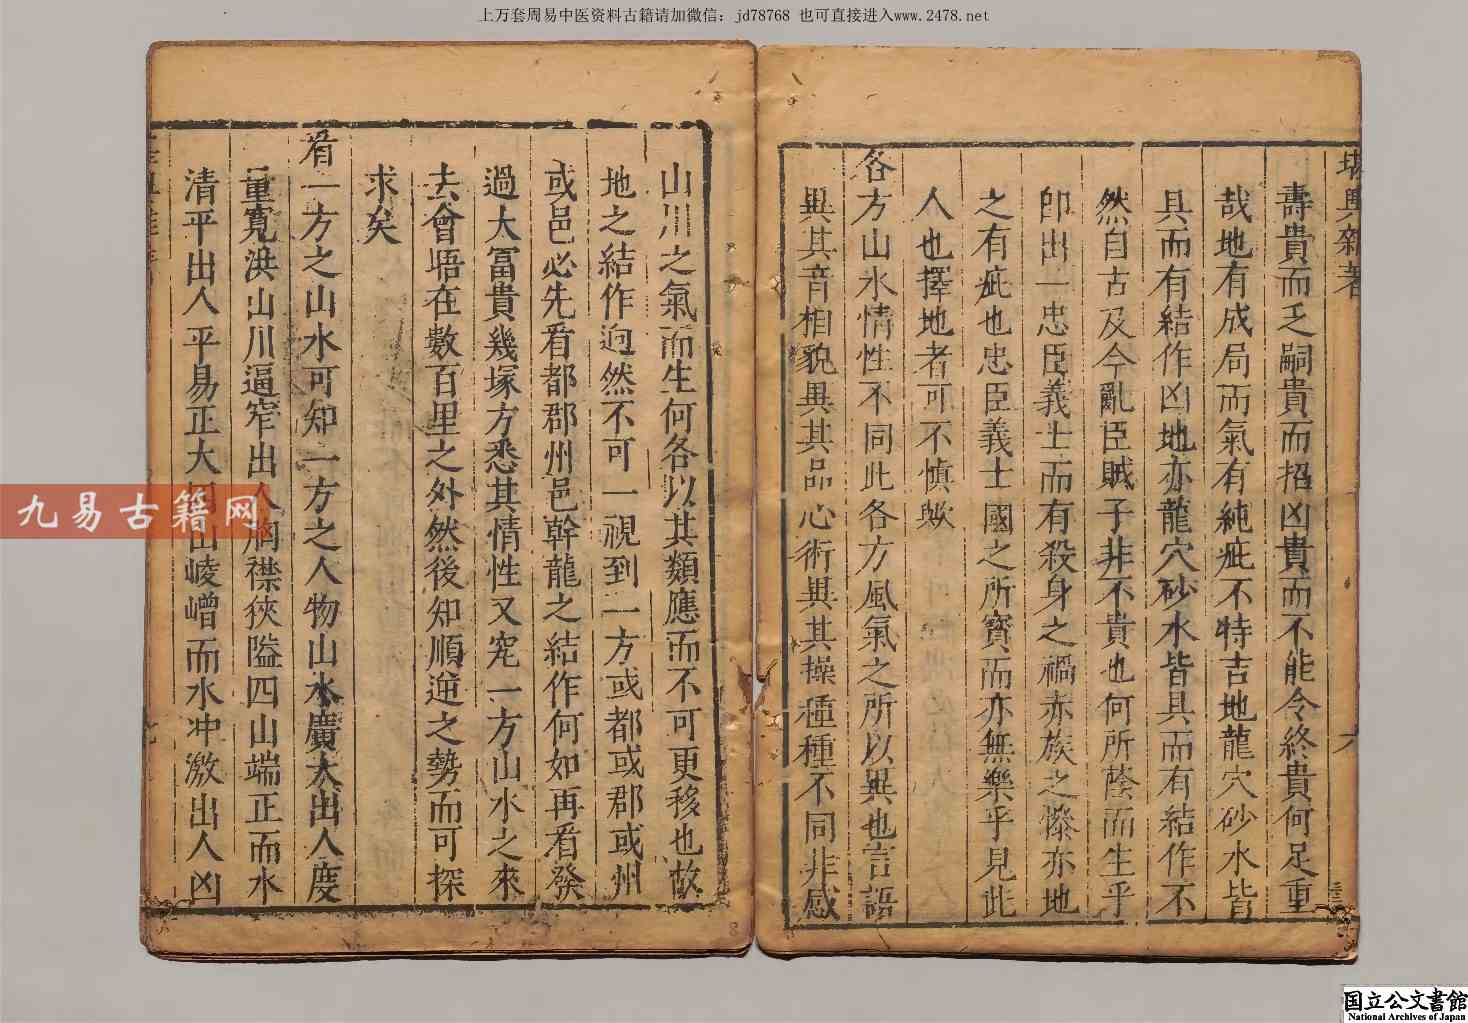 上万套周易中医资料古籍请加微信：jd78768 也可直接进入www.2478.net
堪輿雜著
六
壽貴而乏嗣貴而招凶貴而不能令終貴何足重
哉地有成局而氣有純疵不特吉地龍穴砂水皆
具而有結作凶地亦龍穴砂水皆具而有結作不
然自古及今亂臣賊子非不貴也何所蔭而生乎
卽出一忠臣義士而有殺身之禍赤族之慘亦地
之有疵也忠臣義士國之所寳而亦無樂乎見此
人也擇地者可不慎歟
各方山水情性不同此各方風氣之所以異也言語
異其音相貌異其品心術異其操種種不同非感
山川之氣而生何各以其類應而不可更移也故
地之結作迥然不可一視到一方或都或郡或州
或邑必先看都郡州邑幹龍之結作何如再看發
過大富貴幾塚方悉其情性又究一方山水之來
去會晤在數百里之外然後知順逆之勢而可探
求矣
看一方之山水可知一方之人物山水廣大出人度
量寬洪山川逼窄出人胸襟狹隘四山端正而水
清平出人平易正大山崚嶒而水冲激出人凶
九易古籍网
国立公文書館
National Archives of Japan